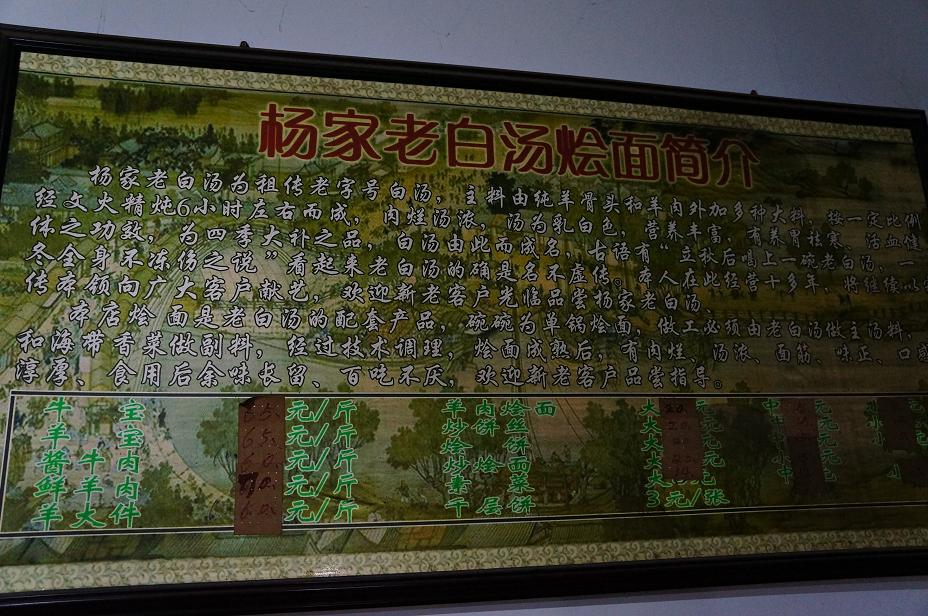 杨家老白汤烩面简介
杨家老白汤为祖传老字号白汤，主料由纯羊骨头和羊肉外加多种大料，按一定比例
经文火精炖6小时左右而成，肉烂汤浓，汤为乳白色，营养丰富，有养胃祛寒、活血健
体之功效，为四季大补之品，白汤由此而成名，古语有“立秋后喝上一碗老白汤，一
冬全身不冻伤之说”看起来老白汤的确是名不虚传。本人在此经营十多年，将继续以
传本领向广大客户献艺，欢迎新老客户光临品尝杨家老白汤。
本店烩面是老白汤的配套产品，碗碗为单锅烩面，做工必须由老白汤做主汤料，
和海带香菜做副料，经过技术调理，烩面成熟后，有肉烂、汤浓、面筋、味正、口感
淳厚、食用后余味长留、百吃不厌，欢迎新老客户品尝指导。
牛宝 65. 元/斤 羊肉烩面 大20.元 中 元 小 元
羊宝 65. 元/斤 炒饼丝 大 元 中 元 小
酱牛肉 60. 元/斤 烩饼 大 元 中 元 小
鲜羊肉 70. 元/斤 炒面 大 元 中 元 小
羊大件 60. 元/斤 素烩菜 大 元
千层饼 3元/张